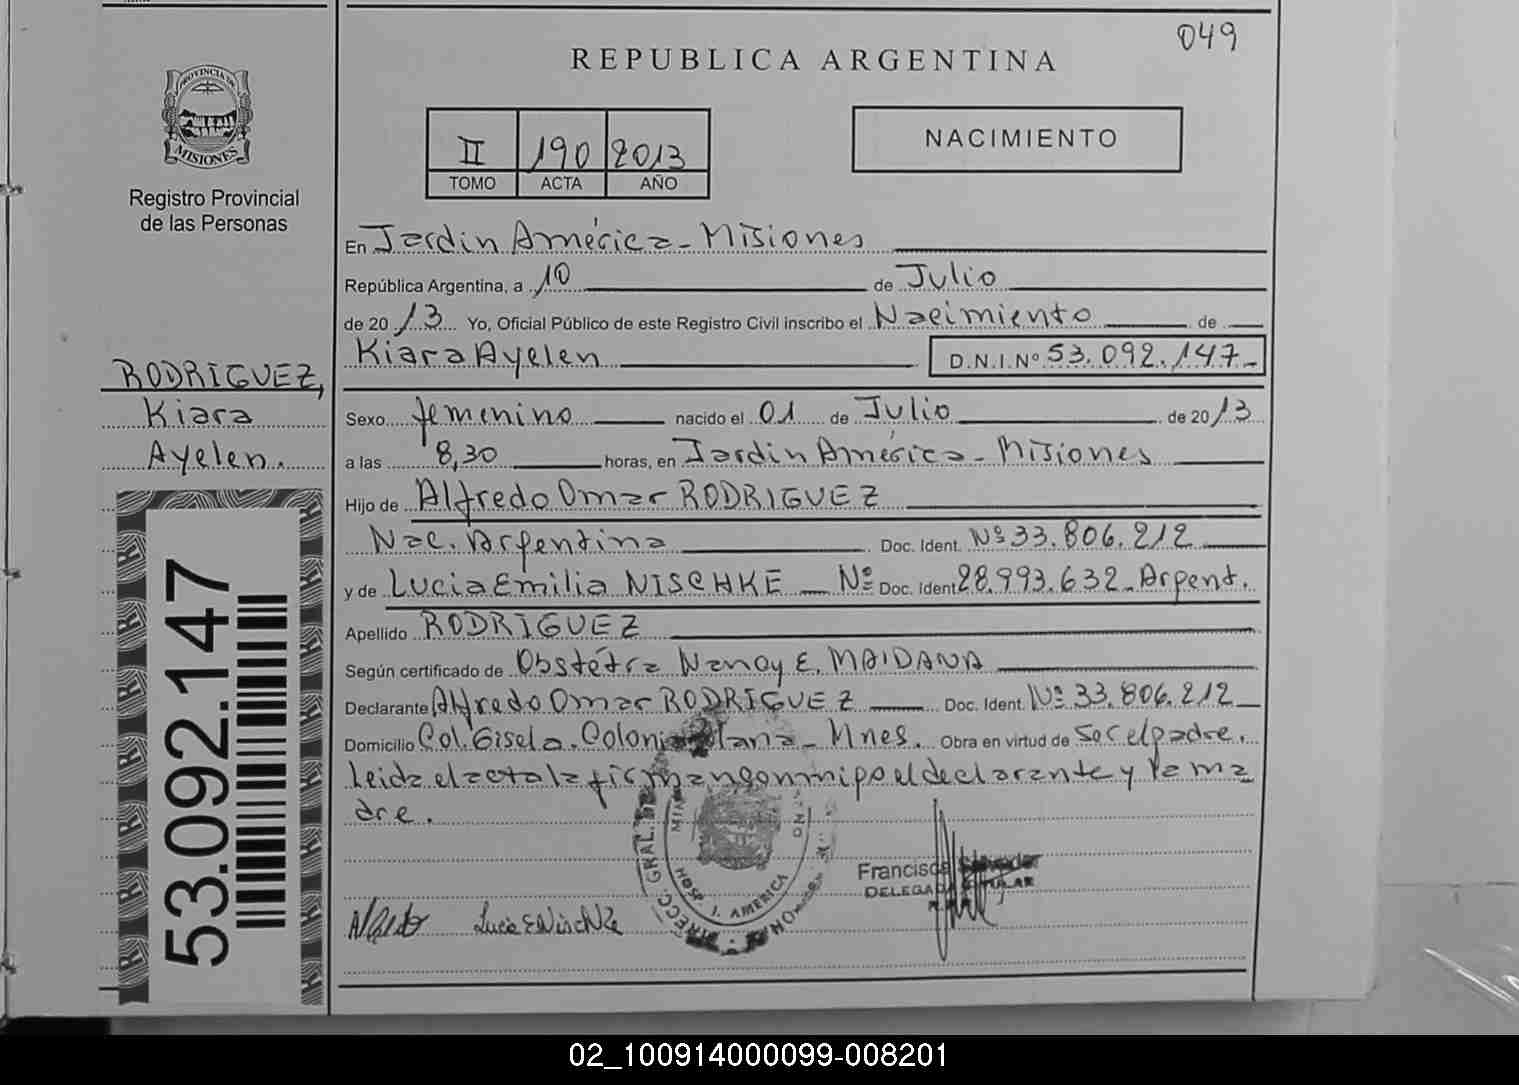 049
REPUBLICA ARGENTINA
PROVINCIA DE
MISIONES
Registro Provincial
de las Personas
II 190 2013
TOMO ACTA AÑO
NACIMIENTO
En Jardin América - Misiones
República Argentina, a 10 de Julio
de 2013 Yo, Oficial Público de este Registro Civil inscribo el Nacimiento de
Kiara Ayelen D.N.I.Nº 53.092.147-
RODRIGUEZ,
Kiara
Ayelen.
Sexo femenino nacido el 01 de Julio de 2013
a las 8,30 horas, en Jardin América - Misiones
Hijo de Alfredo Omar RODRIGUEZ
Nac. Argentina Doc. Ident. Nº 33.806.212
y de Lucia Emilia NISCHKE Nº Doc. Ident 28.993.632 - Argent.
Apellido RODRIGUEZ
Según certificado de Obstétra Nancy E. MAIDANA
Declarante Alfredo Omar RODRIGUEZ Doc. Ident. Nº 33.806.212
Domicilio Col. Gisela. Colonia Polana - Mnes. Obra en virtud de ser el padre.
Leida el acta la firman conmigo el declarante y la ma
dre.
53.092.147
DIRECC. GRAL. DE
HOSP. J. AMERICA
Francisco
DELEGADO TITULAR
Alfredo Lucia E Nischke
02_100914000099-008201